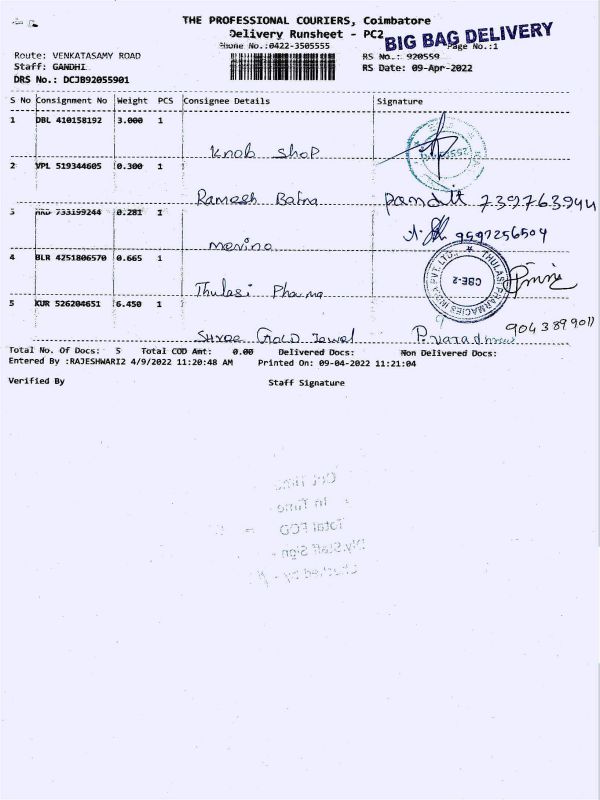 THE PROFESSIONAL COURIERS, Coimbatore
Delivery Runsheet - PC2
BIG BAG DELIVERY
Phone No.:0422-3505555
Page No.:1
Route: VENKATASAMY ROAD
RS No.: 920559
Staff: GANDHI
RS Date: 09-Apr-2022
DRS No.: DCJB92055901
S No Consignment No Weight PCS Consignee Details Signature
1 DBL 410158192 3.000 1
Knob Shop
2 VPL 519344605 0.300 1
Ramesh Bafna Pandit
3 733199244 0.281 1
9597256504
menino
4 BLR 4251806570 0.665 1
THULASI PHARMACIES INDIA PVT. LTD.,
CBE-2
Thulasi Pharma
5 KUR 526204651 6.450 1
Shree Gold Jewel
Total No. Of Docs: 5 Total COD Amt: 0.00 Delivered Docs: Non Delivered Docs:
Entered By :RAJESHWARI2 4/9/2022 11:20:48 AM Printed On: 09-04-2022 11:21:04
Verified By Staff Signature
Out Time
In Time -
Total POD =
Dly.Staff Sign -
Checked by -